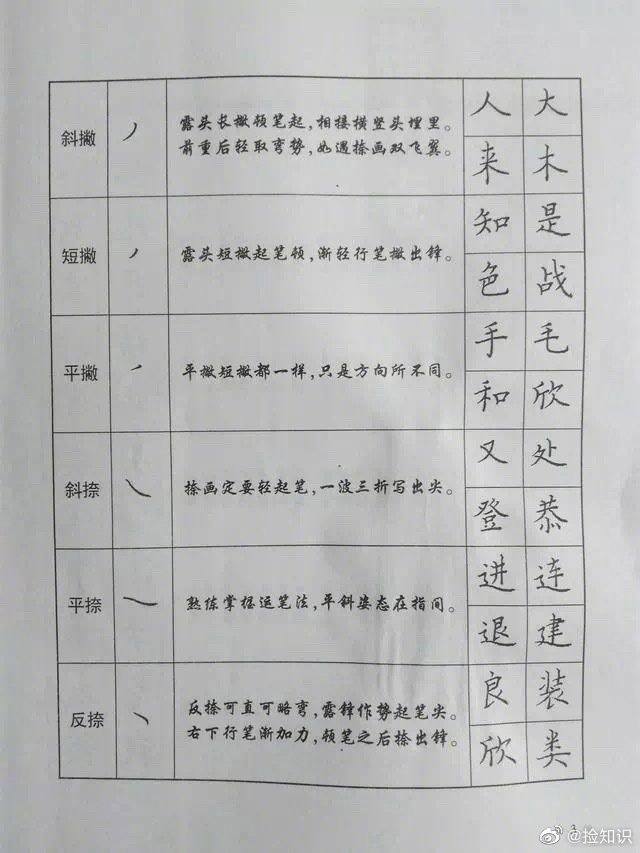 斜撇
露头长撇顿笔起,相接横竖头埋里。
前重后轻取弯势,如遇捺画双飞翼。
人 大
来 木
短撇
露头短撇起笔顿,渐轻行笔撇出锋。
知 是
色 战
平撇
平撇短撇都一样,只是方向所不同。
手 毛
和 欣
斜捺
捺画定要轻起笔,一波三折写出尖。
又 处
登 恭
平捺
熟练掌握运笔法,平斜姿态在指间。
进 连
退 建
反捺
反捺可直可略弯,露锋作势起笔尖。
右下行笔渐加力,顿笔之后捺出锋。
良 装
欣 类
@捡知识